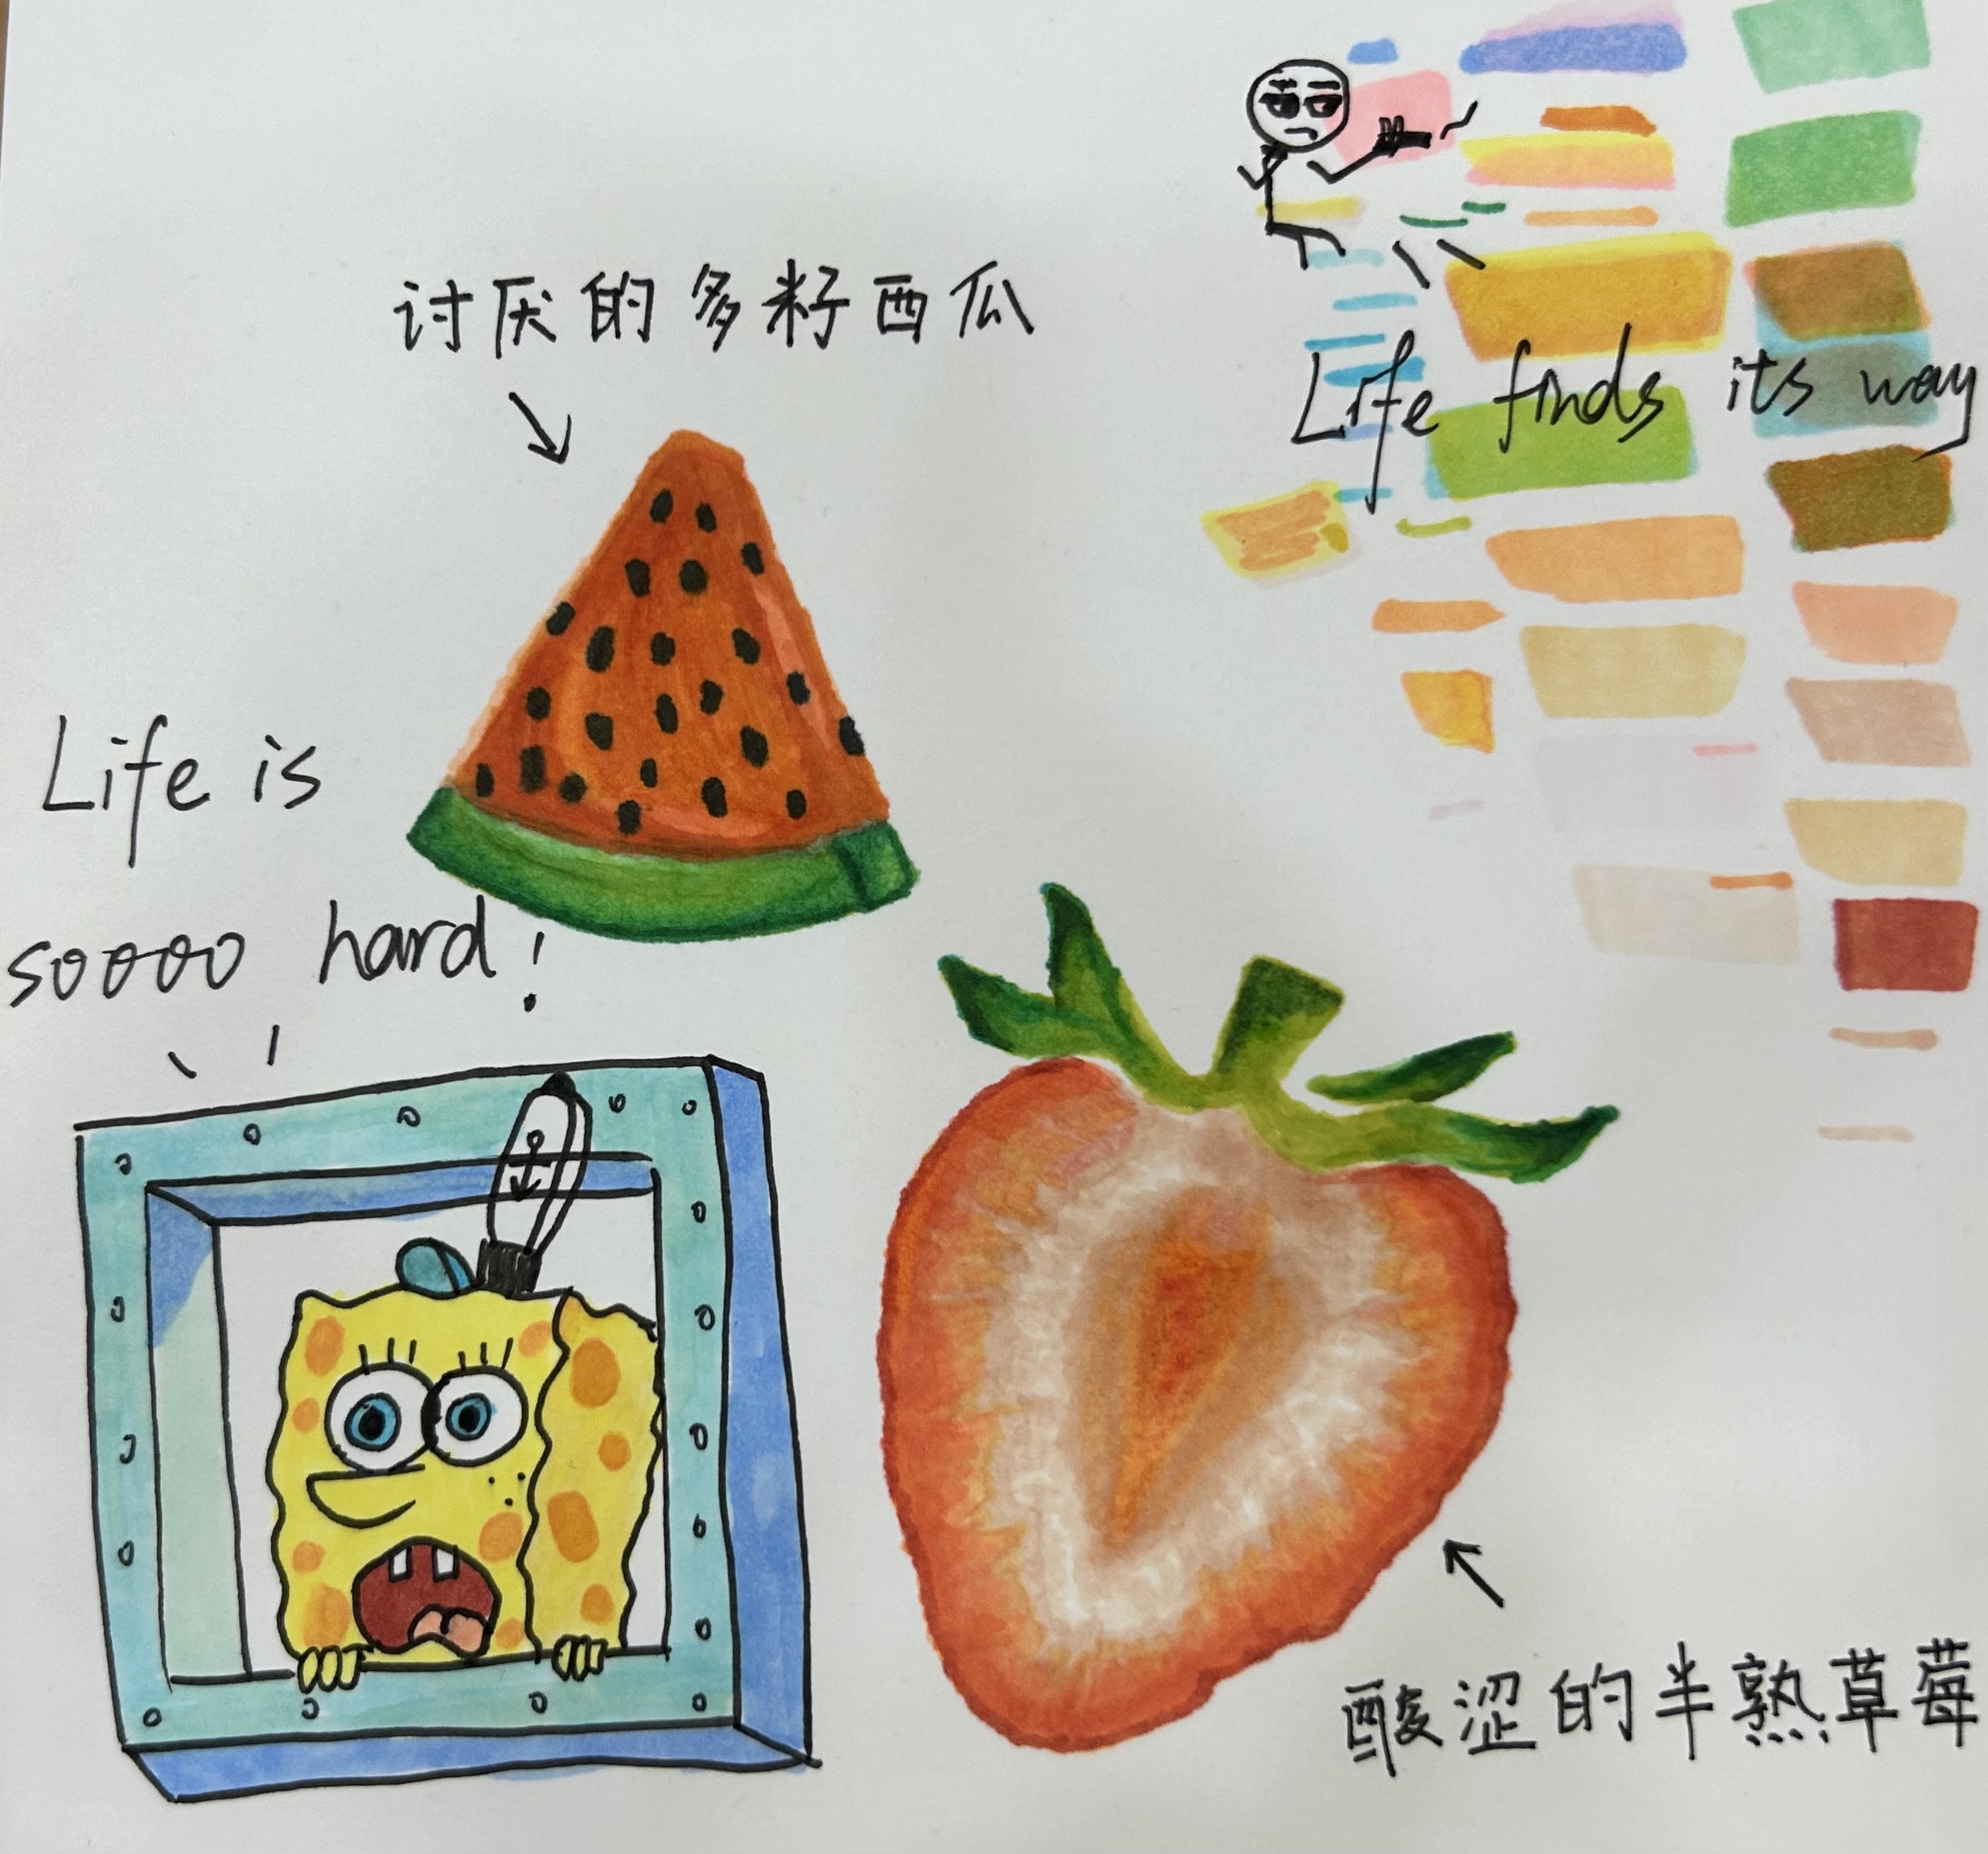 讨厌的多籽西瓜
Life finds its way
Life is
soooo hard!
酸涩的半熟草莓